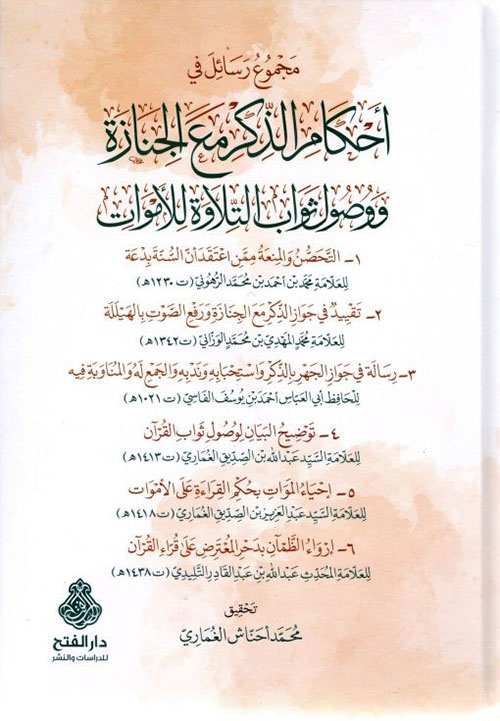 مَجْمُوعُ رَسَائِلَ فِي
أَحْكَامِ الذِّكْرِ مَعَ الجَنَازَةِ
وَوُصُولِ ثَوَابِ التِّلَاوَةِ لِلأَمْوَاتِ
١- التَّحَصُّنُ وَالمِنْعَةُ مِمَّنِ اعْتَقَدَ أَنَّ السُّنَّةَ بِدْعَة
لِلعَلَّامَةِ مُحَمَّدِ بْنِ أَحْمَدَ بْنِ مُحَمَّدٍ الرُّهُونِيِّ (ت ١٢٣٠هـ)
٢- تَقْيِيدٌ فِي جَوَازِ الذِّكْرِ مَعَ الجِنَازَةِ وَرَفْعِ الصَّوْتِ بِالهَيْلَلَة
لِلعَلَّامَةِ مُحَمَّدٍ المَهْدِيِّ بْنِ مُحَمَّدٍ الوَزَّانِيِّ (ت ١٣٤٢هـ)
٣- رِسَالَة فِي جَوَازِ الجَهْرِ بِالذِّكْرِ وَاسْتِحْبَابِهِ وَنَدْبِهِ وَالجَمْعِ لَهُ وَالمُنَاوَبَةِ فِيهِ
لِلْحَافِظِ أَبِي العَبَّاسِ أَحْمَدَ بْنِ يُوسُفَ الفَاسِيِّ (ت ١٠٢١هـ)
٤- تَوْضِيحُ البَيَانِ لِوُصُولِ ثَوَابِ القُرْآن
لِلعَلَّامَةِ السَّيِّدِ عَبْدِ اللهِ بْنِ الصِّدِّيقِ الغُمَارِيِّ (ت ١٤١٣هـ)
٥- إِحْيَاءُ المَوَاتِ بِحُكْمِ القِرَاءَةِ عَلَى الأَمْوَات
لِلعَلَّامَةِ السَّيِّدِ عَبْدِ العَزِيزِ بْنِ الصِّدِّيقِ الغُمَارِيِّ (ت ١٤١٨هـ)
٦- إِرْوَاءُ الظَّمْآنِ بِدَحْرِ المُعْتَرِضِ عَلَى قُرَّاءِ القُرْآن
لِلعَلَّامَةِ المُحَدِّثِ عَبْدِ اللهِ بْنِ عَبْدِ القَادِرِ التَّلِيدِيِّ (ت ١٤٣٨هـ)
تَحْقِيق
مُحَمَّد أَحْنَاش الغُمَارِيّ
دار الفتح
للدراسات والنشر